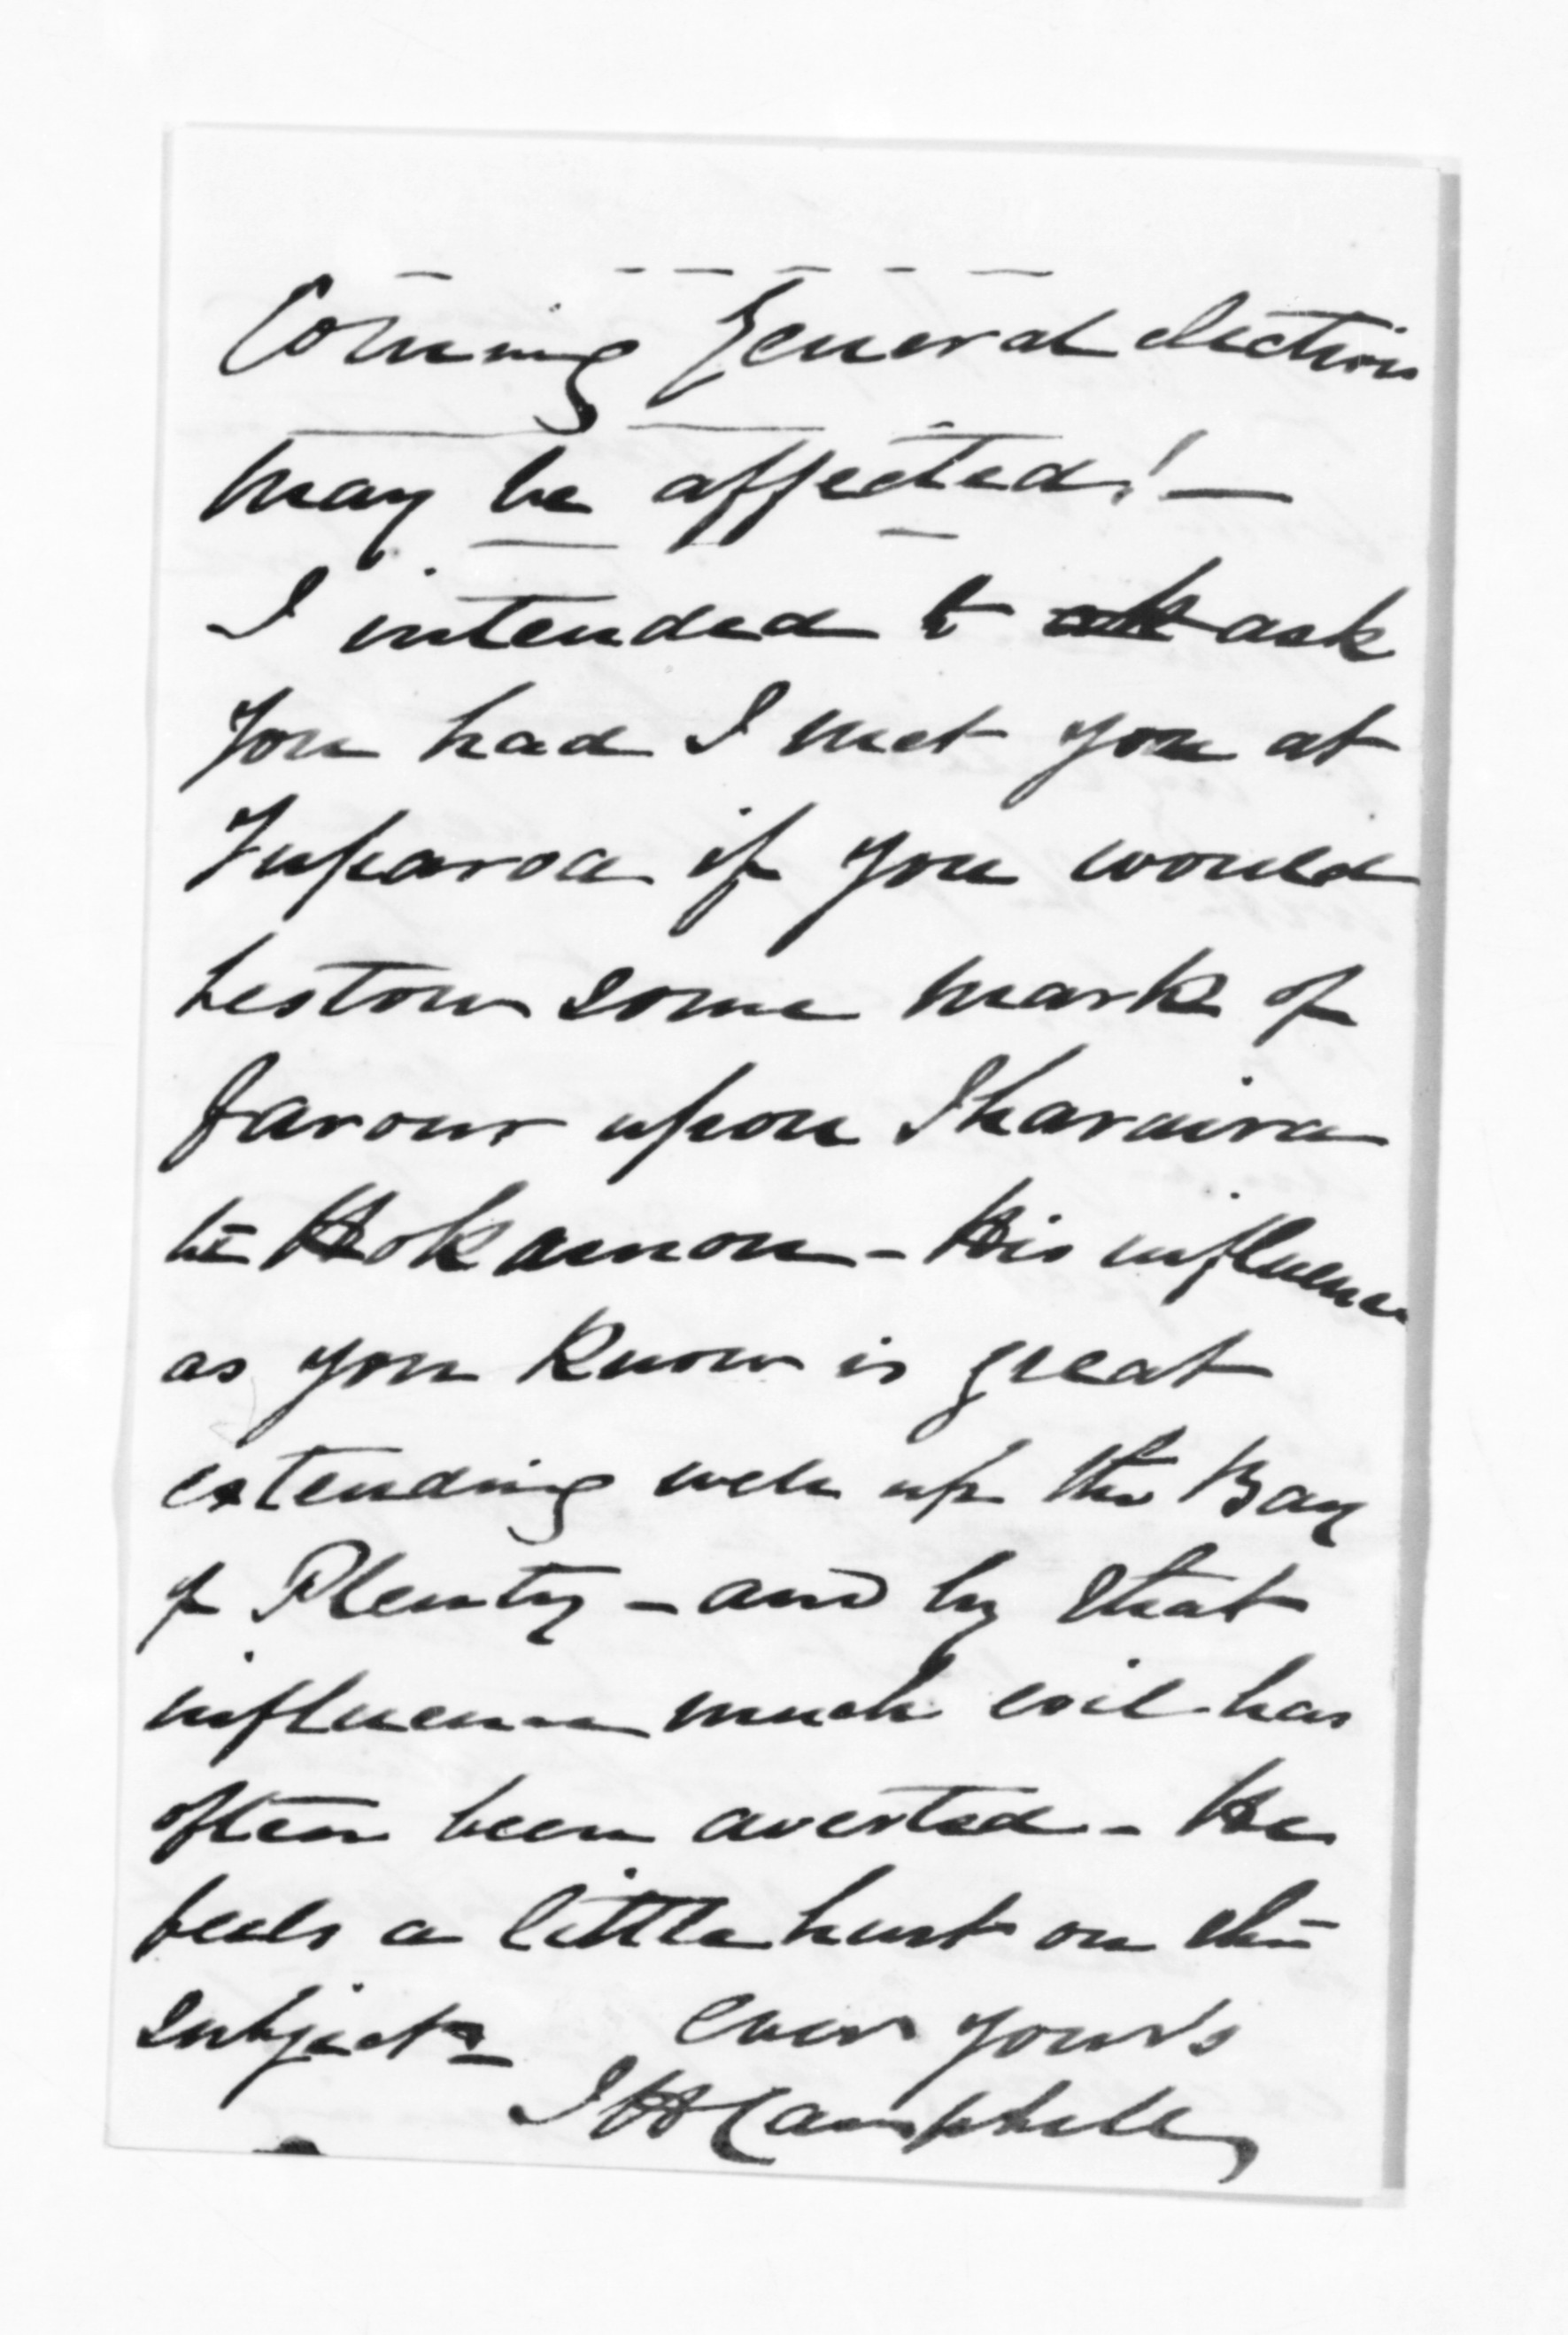 Coming General election
may be affected! —
I intended to ask ask
you had I met you at
Tuparoa if you would
bestow some mark of
favour upon Iharaira
te Hokamou - His influence
as you know is great
extending well up the Bay
of Plenty - and by that
influence much evil has
often been averted - He
feels a little hurt on this
subject - ever yours
J H Campbell